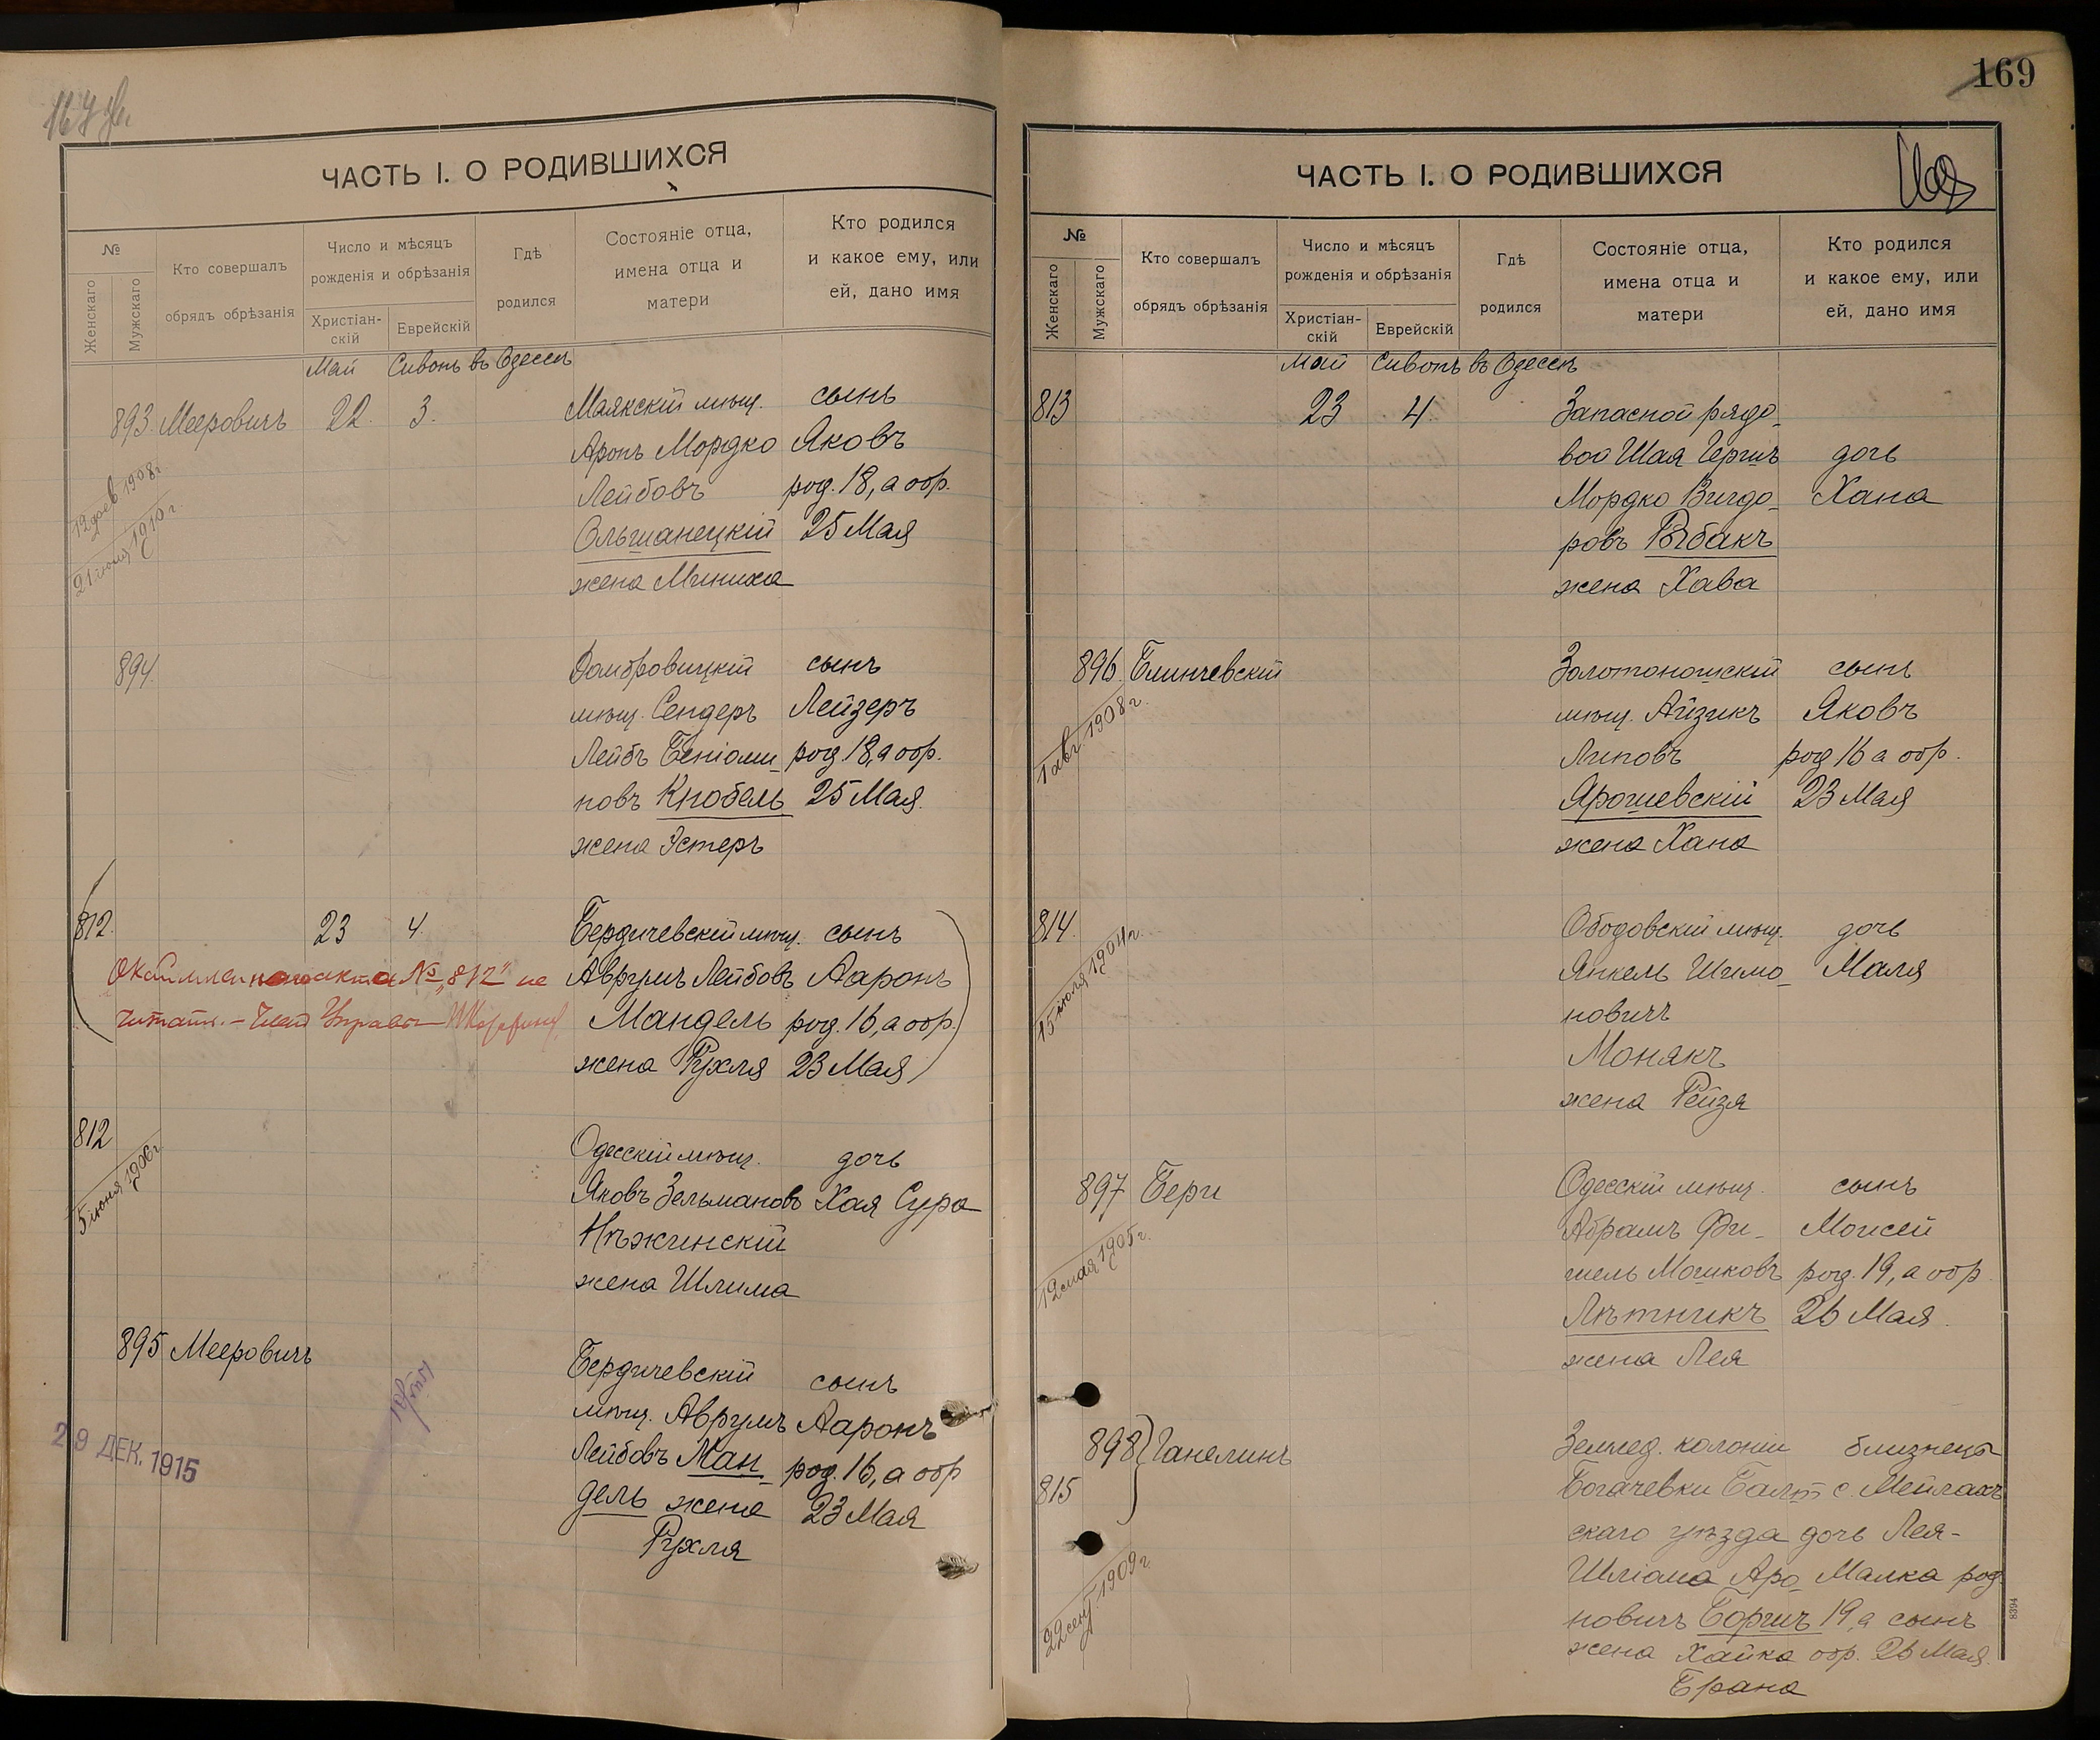 ЧАСТЬ I. О РОДИВШИХСЯ
№
Женскаго
Мужскаго
Кто совершалъ
обрядъ обрѣзанія
Число и мѣсяцъ
рожденія и обрѣзанія
Христіан-
скій
Еврейскій
Гдѣ
родился
Состояніе отца,
имена отца и
матери
Кто родился
и какое ему, или
ей, дано имя
Май Сивонъ въ Одессѣ
893. Мееровичъ 22. 3. Маякскій мѣщ. сынъ
Аронъ Мордко Яковъ
Лейбовъ род. 18, а обр.
Ольшанецкій 25 Мая
жена Миниха
1908 г.
1910 г.
894 Домбровицкій сынъ
мѣщ. Сендеръ Лейзеръ
Лейбъ Беніоми- род. 18, а обр.
новъ Кнобель 25 Мая.
жена Эстеръ
812. 23 4. Бердичевскій мѣщ. сынъ
акта № „812" не Аврумъ Лейбовъ Ааронъ
читать. – Член Управы Мандель род. 16, а обр.
жена Рухля 23 Мая
812 Одесскій мѣщ. дочь
5 іюня 1906 г. Яковъ Зельмановъ Хая Сура
Нѣжинскій
жена Шлима
895 Мееровичъ Бердичевскій сынъ
мѣщ. Аврумъ Ааронъ
29 ДЕК. 1915 Лейбовъ Ман- род. 16, а обр
дель жена 23 Мая
Рухля
169
ЧАСТЬ I. О РОДИВШИХСЯ
№
Женскаго
Мужскаго
Кто совершалъ
обрядъ обрѣзанія
Число и мѣсяцъ
рожденія и обрѣзанія
Христіан-
скій
Еврейскій
Гдѣ
родился
Состояніе отца,
имена отца и
матери
Кто родился
и какое ему, или
ей, дано имя
Май Сивонъ въ Одессѣ
813 23 4. Запасной рядо-
вой Шая Гершъ дочь
Мордко Вигдо- Хана
ровъ Рыбакъ
жена Хава
896. Блинчевскій Золотоношскій сынъ
1 авг 1908 г. мѣщ. Айзикъ Яковъ
Липовъ род 16 а обр.
Ярошевскій 23 Мая
жена Хана
814. Ободовскій мѣщ. дочь
15 іюля 1904 г. Янкель Шимо- Маля
новичъ
Монякъ
жена Рейзя
897 Бери Одесскій мѣщ. сынъ
12 мая 1905 г. Абрамъ Фи- Моисей
шель Мошковъ род. 19, а обр.
Лѣтникъ 26 Мая.
жена Лея
898 Ганелинъ Землед. колоніи близнецы
815 Богачевки Балт- с. Мейлахъ
скаго уѣзда дочь Лея-
22 сент. 1909 г. Шліома Аро- Малка род.
новичъ Боршъ 19, а сынъ
жена Хайка обр. 26 Мая.
Брана
8394